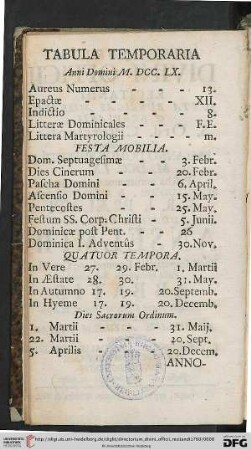 TABULA TEMPORARIA
Anni Domini M. DCC. LX.
Aureus Numerus - - - 13.
Epactæ - - - - XII.
Indictio - - - - 8.
Litteræ Dominicales - - F.E.
Littera Martyrologii - - m.
FESTA MOBILIA.
Dom. Septuagesimæ - - 3. Febr.
Dies Cinerum - - 20. Febr.
Pascha Domini - - 6. April.
Ascensio Domini - - 15. May.
Pentecostes - - 25. May.
Festum SS. Corp: Christi - 5. Junii.
Dominicæ post Pent. - - 26
Dominica I. Adventûs - 30. Nov.
QUATUOR TEMPORA.
In Vere 27. 29. Febr. 1. Martii
In Æstate 28. 30. 31. May.
In Autumno 17. 19. 20. Septemb.
In Hyeme 17. 19. 20. Decemb.
Dies Sacrorum Ordinum.
1. Martii - - 31. Maij.
22. Martii - - 20. Sept.
5. Aprilis - 20. Decem.
ANNO-